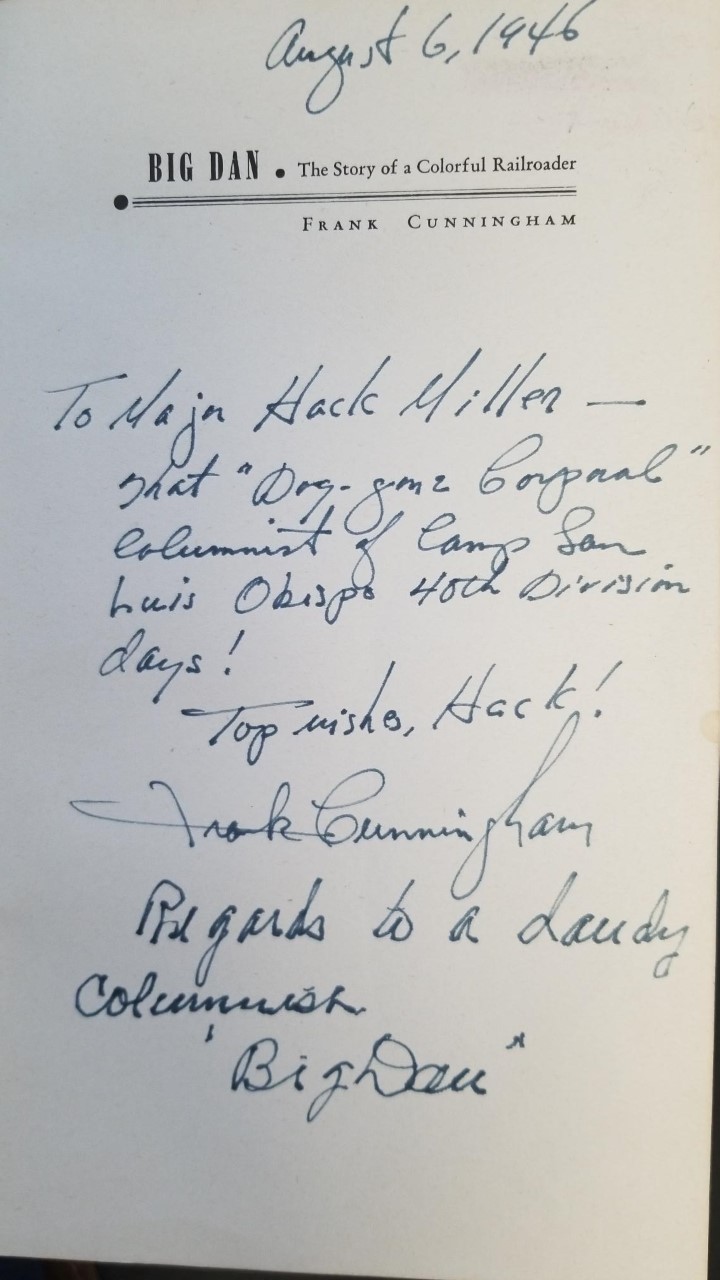 August 6, 1946
BIG DAN • The Story of a Colorful Railroader
FRANK CUNNINGHAM
To Major Hack Miller —
that "Dog-gone Corporal"
columnist of Camp San
Luis Obispo 40th Division
days!
Top wishes, Hack!
Frank Cunningham
Regards to a dandy
Columnist.
"Big Dan"